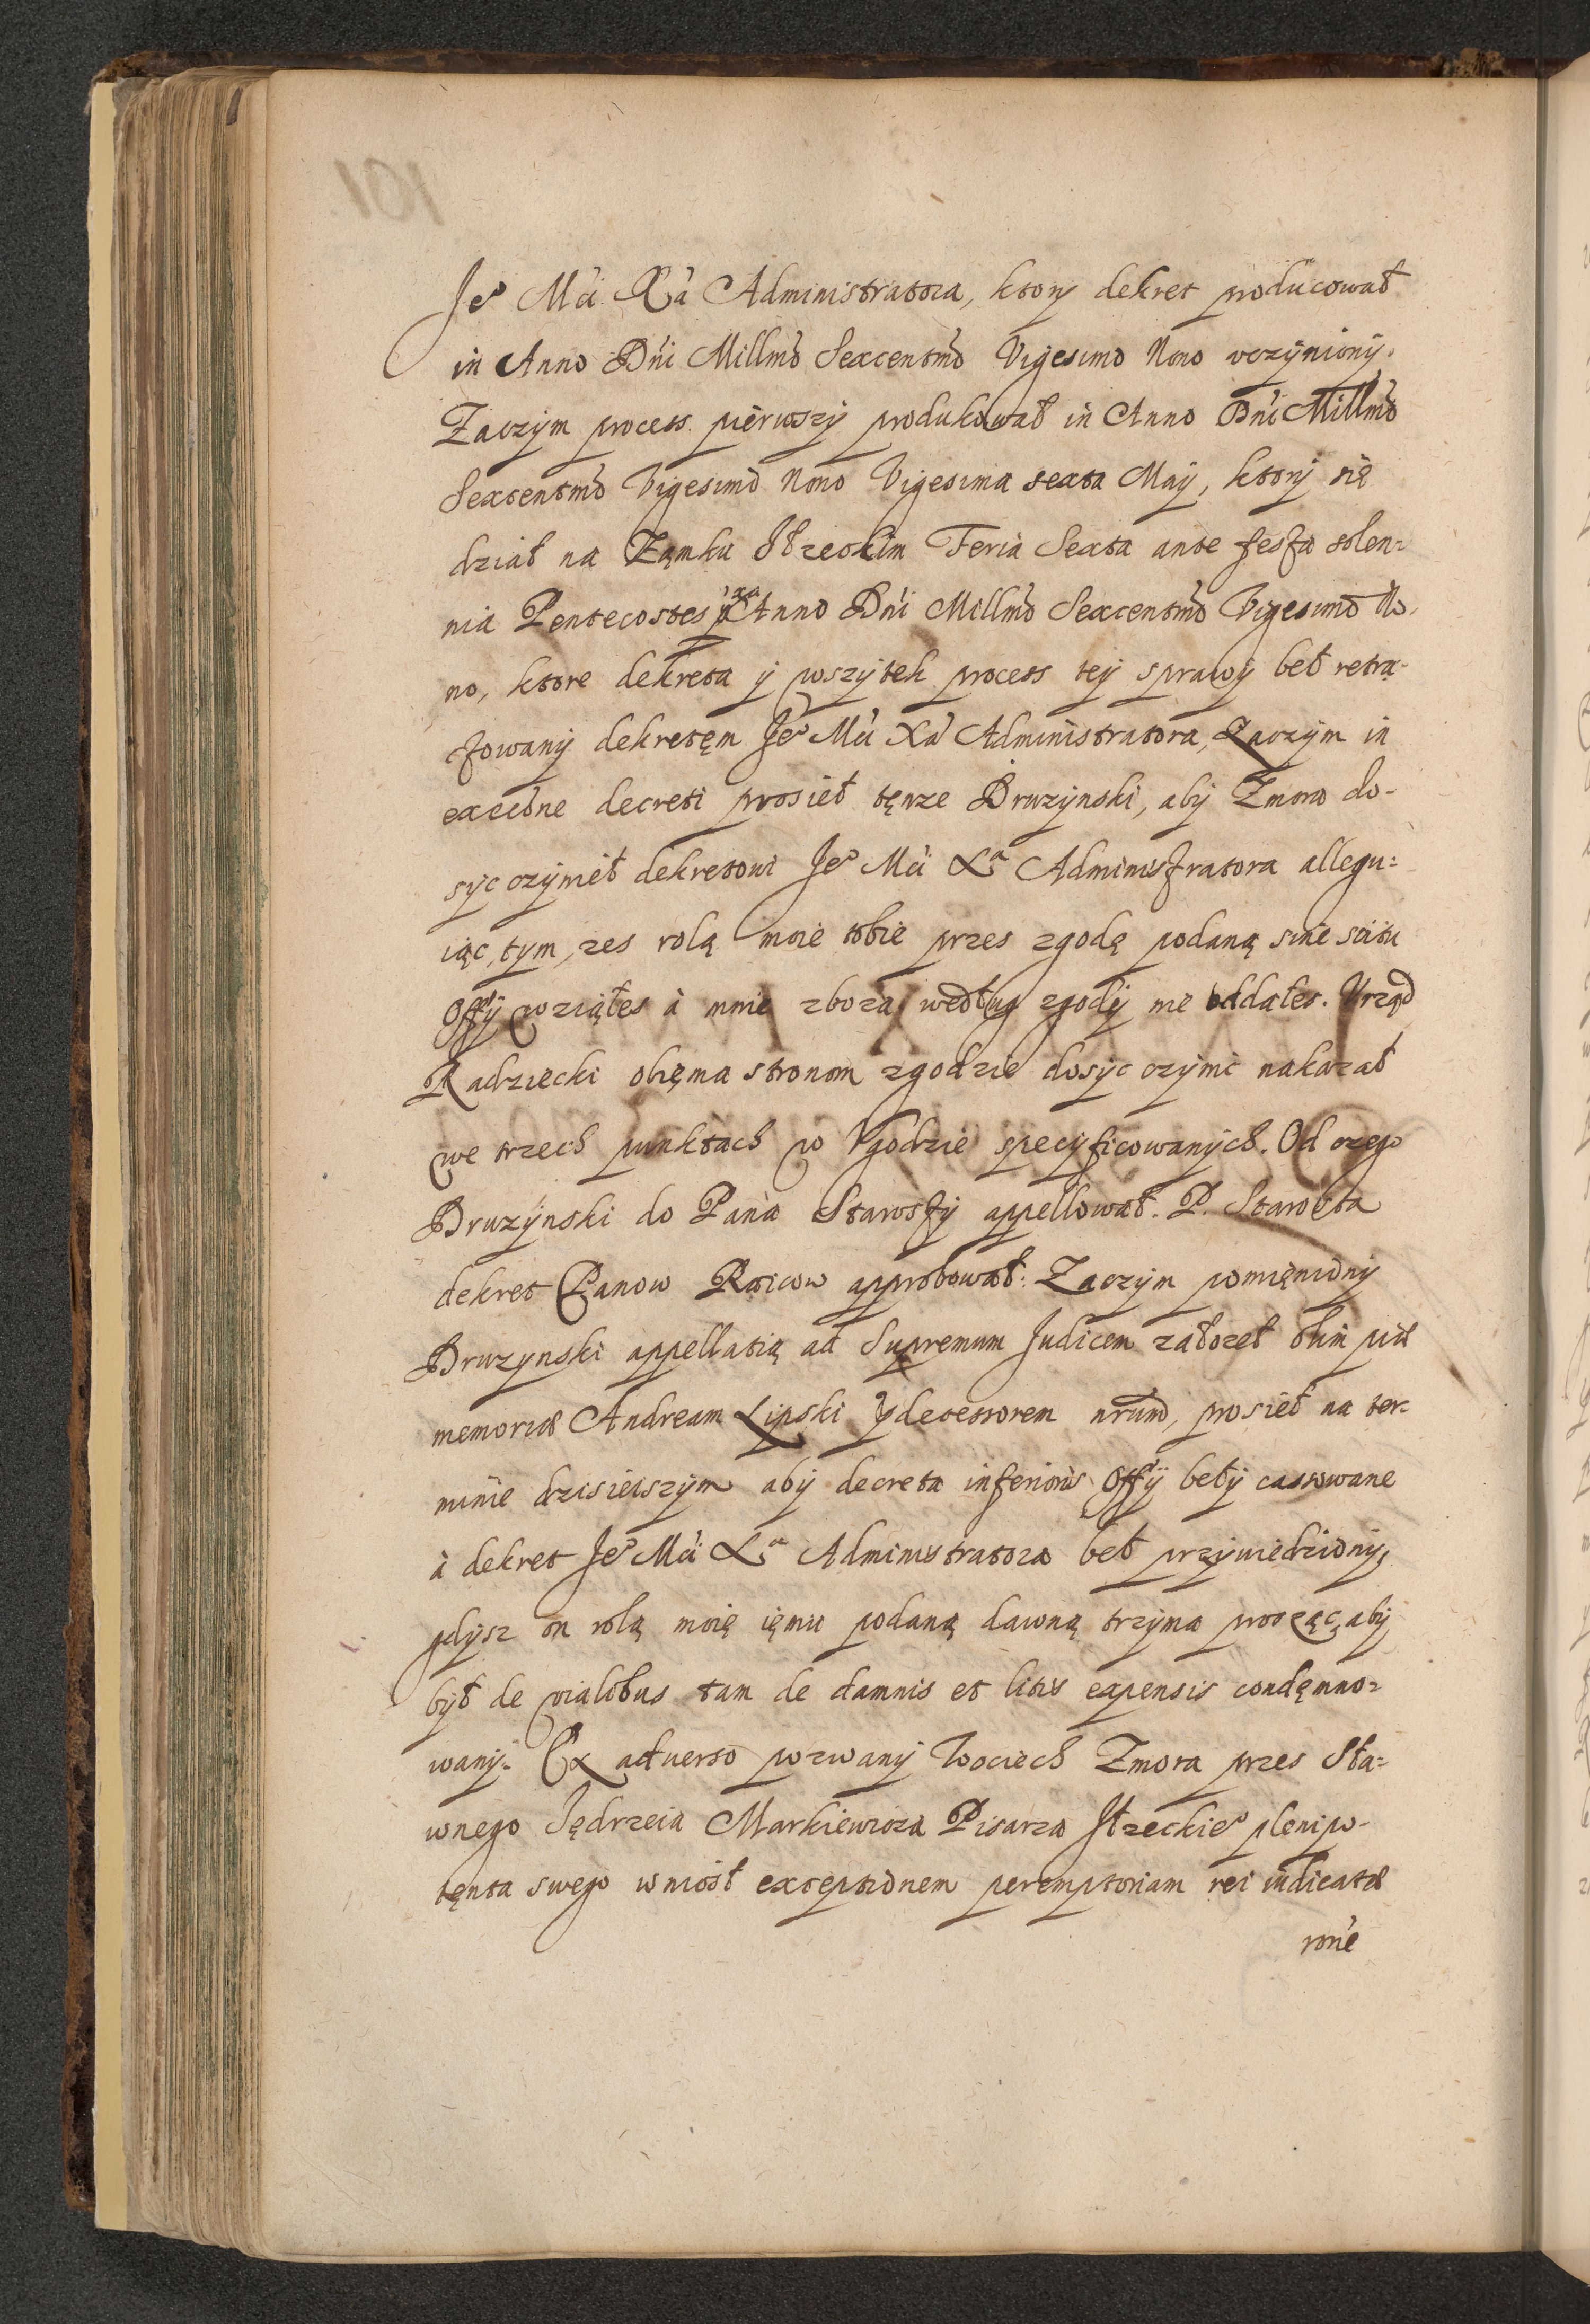 Je⁰ Mći Xa Administratora, ktory dekret producował
in Anno Dńi Millmo Sexcentmo Vigesimo Nono vczyniony.
Zaczym process pierwszy produkował in Anno Dńi Millmo
Sexcentmo Vigesimo Nono Vigesima sexta Maÿ, ktory się
dział na Ząmku Iłzeckim Feria Sexta ante festa solen=
nia Pentecostes Anno Dńi Millmo Sexcentmo Vigesimo No-
no, ktore dekreta ÿ wszÿtek process teÿ sprawÿ beł retra-
ctowanÿ dekretęm Je⁰ Mći Xa Administratora, Zaczÿm in
execũne decreti prosieł tęnze Druzÿnski, abÿ Zmora do-
sÿc czÿnieł dekretowi Je⁰ Mći Xᵃ Administratora allegu=
iąc, tym, zes rolą moie tobie przes zgodę podaną sine scitu
Offÿ wziąłes à mnie zboza według zgodÿ nie oddałes. Vrząd
Radziecki obięma stronom zgodzie dosÿc czÿnić nakazał
we trzech punktach w Vgodzie specÿficowanÿch. Od czego
Druzÿnski do Pana Starostÿ appellował. P. Starosta
dekret Panow Raicow approbował: Zaczÿm pomięniony
Druzynski appellatią ad Supremum Judicem załozeł olim piæ
memoriæ Andream Lipski decessorem nrum, prosieł na ter-
minie dzisieiszÿm abÿ decreta inferioris Offÿ bełÿ cassowane
à dekret Je⁰ Mći Xᵃ Administratora beł przÿwiedzionÿ,
gdÿsz on rolą moię ięmu podaną dawną trzÿma prosząc, abÿ
bÿł de vialibus tam de damnis et litis expensis condęmno=
wanÿ. Ex aduerso pozwanÿ Woćiech Zmora przes Sła=
wnego Jędrzeia Markiewicza Pisarza Iłzeckie⁰ plenipo-
tęnta swego wniosł exceptionem peremptoriam rei iudicatæ
rońe